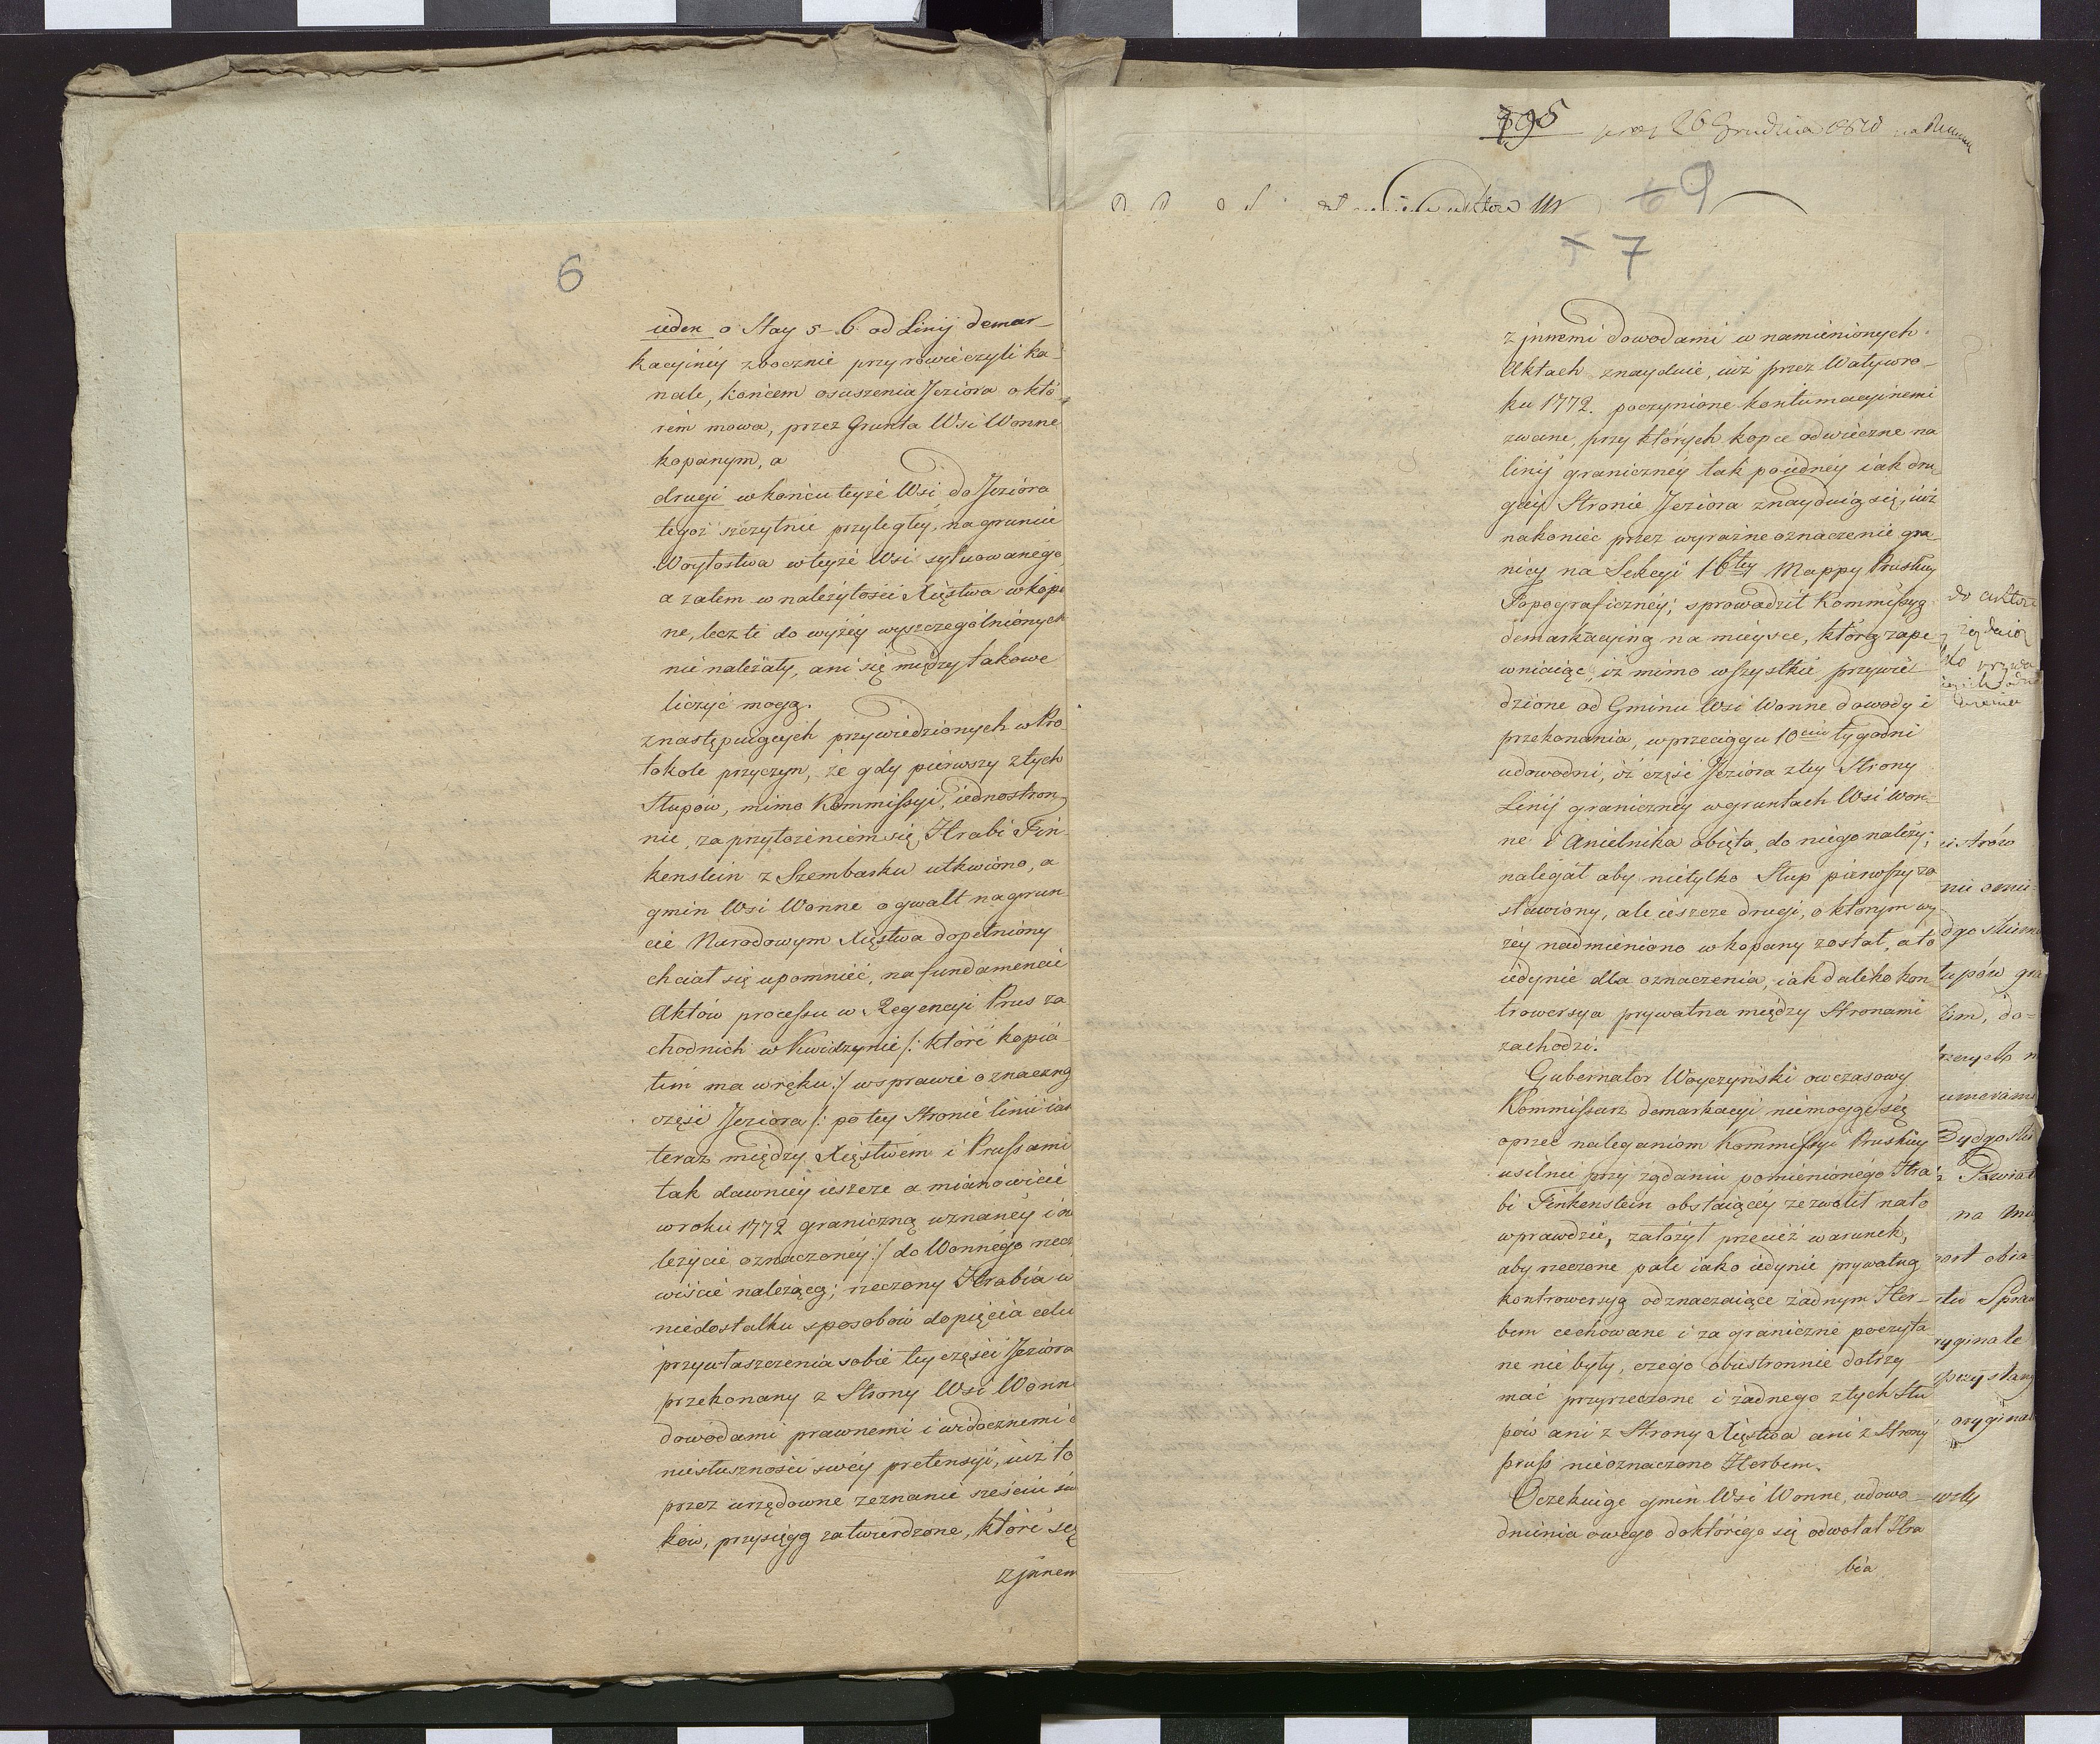 6
ieden o Stay 5-6 od Linij demar-
kacyiney zbocznie przy rowie czyli ka-
nale, końcem osuszenia Jeziora o któ-
rem mowa, przez Grunta Wsi Wonne
kopanym, a
drugi w końcu teyże Wsi do Jeziora
tegoż szczytnie przyległey, na gruncie
Woytostwa w teyże Wsi sytuowanego,
a zatem w należytości Xięstwa wkopa
ne, lecz te do wyżey wyszczególnionych
nie należały, ani się między takowe
liczyć mogą.
z następuiących przywiedzionych w Pro
tokole przyczyn, że gdy pierwszy z tych
Słupów, mimo Kommissyi, iednostron-
nie, za przyłożeniem się Hrabi Fin-
kenstein z Szembarku utkwiono, a
gmin Wsi Wonne o gwalt na grun-
cie Narodowym Xięstwa dopełniony
chciał się upomnieć, na fundamencie
Aktów processu w Regencyi Prus za
chodnich w Kwidzynie /: które kopia-
tim ma w ręku :/ w sprawie oznaczną
części Jeziora /: po tey Stronie linii iak
teraz między Xięstwem i Prussami
tak dawniey ieszcze a mianowicie
w roku 1772 graniczną uznaney i na
leżycie oznaczoney :/ do Wonnego rzecz
wiście należącą; rzeczony Hrabia w
niedostatku sposobów dopięcia celu
przywłaszczenia sobie tey części Jeziora
przekonany z Strony Wsi Wonne
dowodami prawnemi i widocznemi o
niesłuszności swey pretensyi, iuż to
przez urzędowne zeznanie sześciu św
ków, przysięgą zatwierdzone, które się
z jnnem
795 26 Grudnia
69
7
z jnnemi dowodami w namienionych
Aktach znayduie, iuż przez Wały w ro-
ku 1772. poczynione kontumacyinemi
zwane, przy których kopce odwieczne na
linij graniczney tak po iedney iak dru
giey Stronie Jeziora znayduią się, iuż
nakoniec przez wyraźne oznaczenie gra-
nicy na Sekcyi 16tey Mappy Pruskiey
Topograficzney; sprowadził Kommissyą
demarkacyiną na mieysce, którą zape
wniaiąc, iż mimo wszystkie przywie-
dzione od Gminu Wsi Wonne dowody i
przekonania, w przeciągu 10ciu tygodni
udowodni, iż część Jeziora z tey Strony
Linij graniczney w gruntach Wsi Won-
ne i Anielnika obięta, do niego należy;
nalegał aby nietylko Słup pierwszy zo
stawiony, ale ieszcze drugi, o którym wy
żey nadmieniono wkopany został, a to
iedynie dla oznaczenia, iak daleko kon
trowersya prywatna między Stronami
zachodzi.
Gubernator Woyczyński owczasowy
Kommissarz demarkacyi niemogąc się
oprzeć naleganiom Kommissyi Pruskiey
usilnie przy żądaniu pomienionego Hra-
bi Finkenstein obstaiącey zezwolił na to
wprawdzie, założył przecież warunek,
aby rzeczone pale iako iedynie prywatną
kontrowersyą odznaczaiące żadnym Her-
bem cechowane i za graniczne poczyta
ne nie były, czego obustronnie dotrzy
mać przyrzeczono i żadnego z tych Słu
pów ani z Strony Xięstwa ani z Strony
pruss nieoznaczono Herbem.
Oczekuiąc gmin Wsi Wonne, udowo-
dnienia owego do którego się odwołał Hra
bia